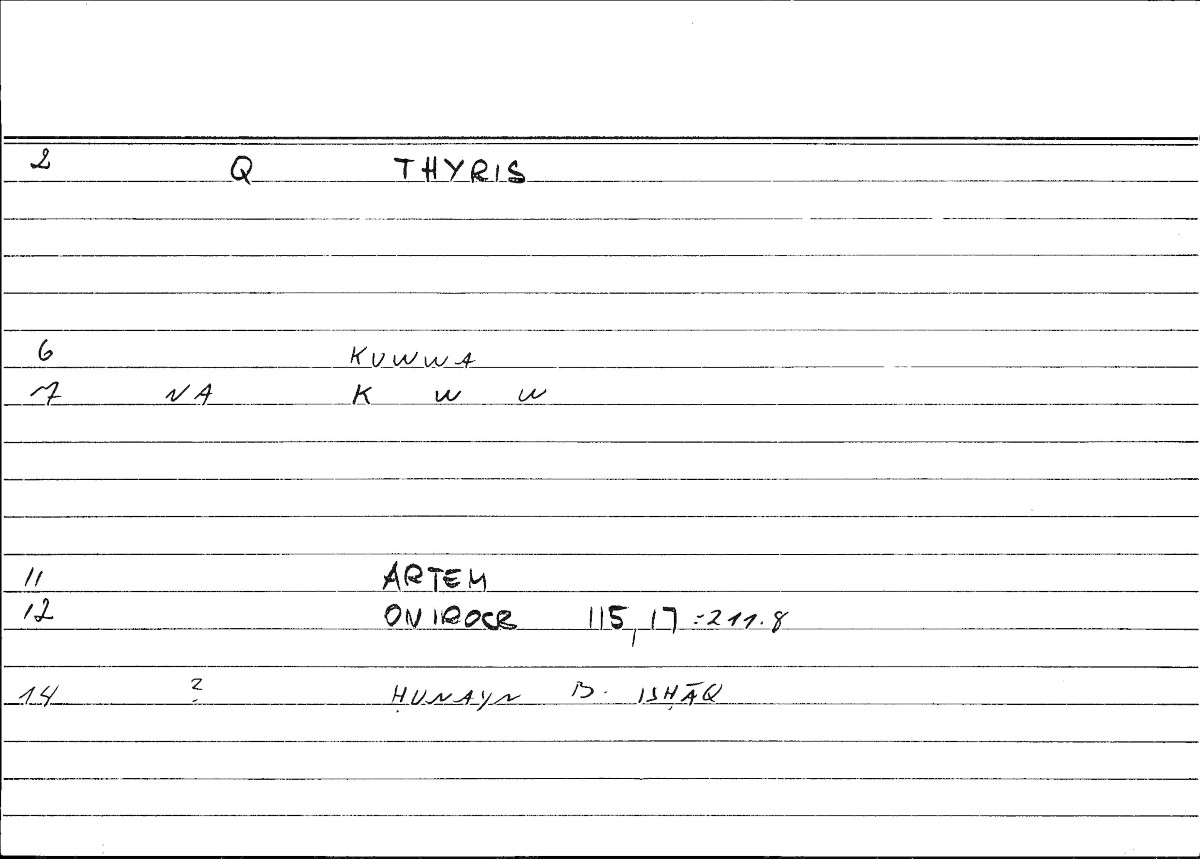 2 Q THYRIS
6 KUWWA
7 NA K W W
11 ARTEM
12 ONIROCR 115,17 = 211.8
14 ? ḤUNAYN B. ISḤĀQ